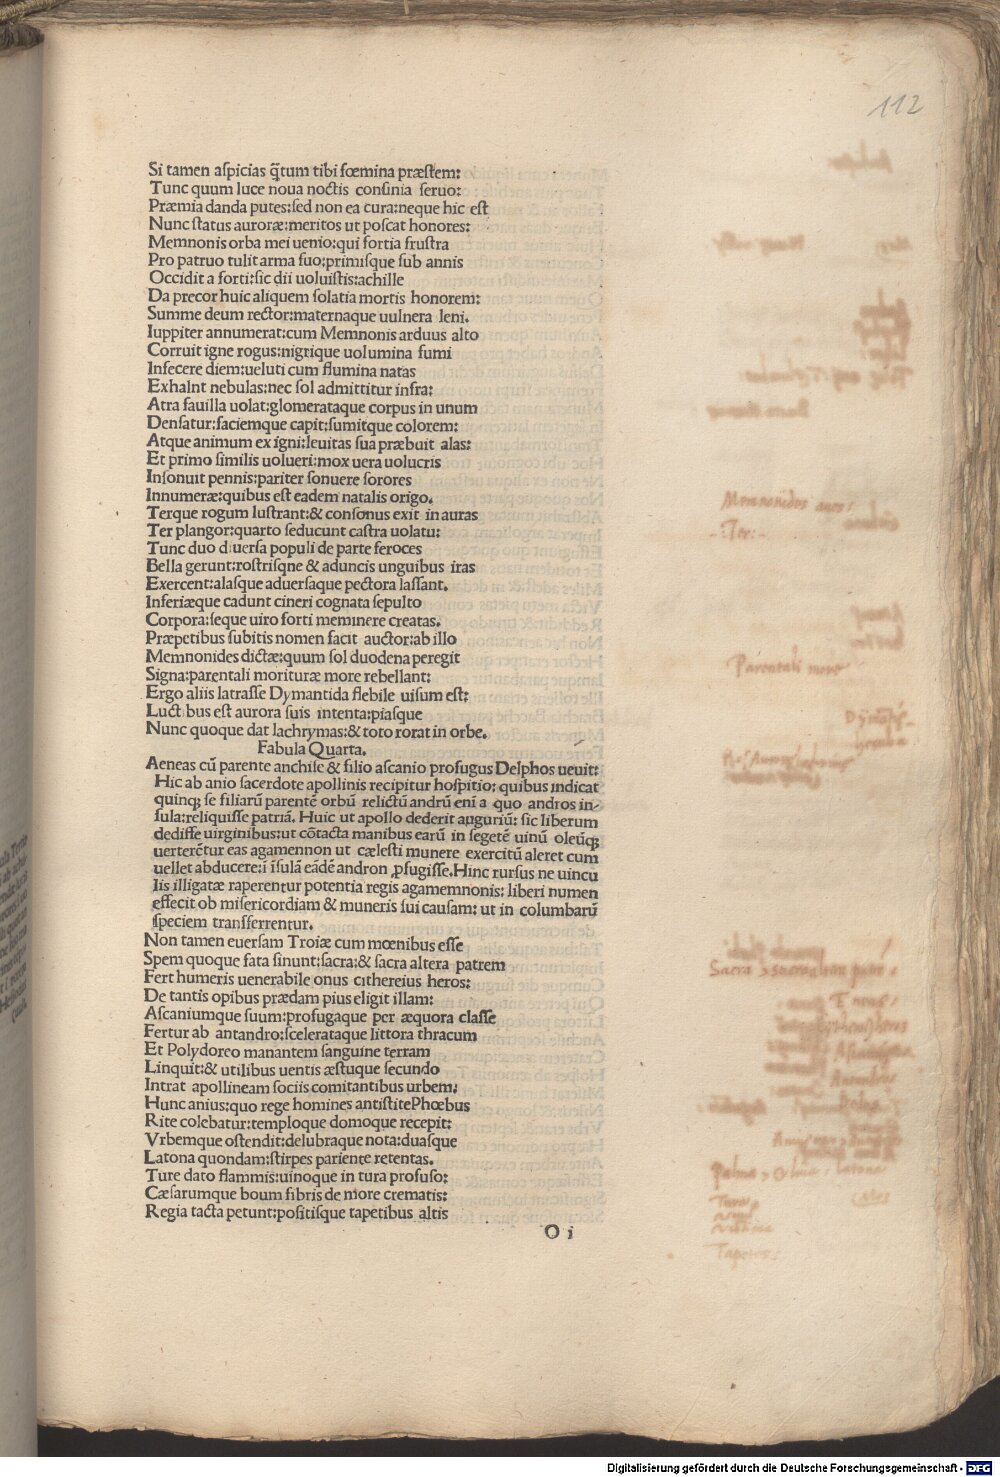 112
Si tamen aſpicias q̃tum tibi fœmina præſtem:
Tunc quum luce noua noctis conſinia ſeruo:
Præmia danda putes:ſed non ea cura:neque hic eſt
Nunc ſtatus auroræ:meritos ut poſcat honores:
Memnonis orba mei uenio:qui fortia fruſtra
Pro patruo tulit arma ſuo:primiſque ſub annis
Occidit a forti:ſic dii uoluiſtis:achille
Da precor huic aliquem ſolatia mortis honorem:
Summe deum rector:maternaque uulnera leni.
Iuppiter annumerat:cum Memnonis arduus alto
Corruit igne rogus:nigrique uolumina fumi
Infecere diem:ueluti cum flumina natas
Exhalnt nebulas:nec ſol admittitur infra:
Atra fauilla uolat:glomerataque corpus in unum
Denſatur:faciemque capit:ſumitque colorem:
Atque animum ex igni:leuitas ſua præbuit alas:
Et primo ſimilis uolucri:mox uera uolucris
Inſonuit pennis:pariter ſonuere ſorores
Innumeræ:quibus eſt eadem natalis origo.
Terque rogum luſtrant:& conſonus exit in auras
Ter plangor:quarto ſeducunt caſtra uolatu:
Tunc duo diuerſa populi de parte feroces
Bella gerunt:roſtriſqne & aduncis unguibus iras
Exercent:alaſque aduerſaque pectora laſſant.
Inferiæque cadunt cineri cognata ſepulto
Corpora:ſeque uiro forti meminere creatas.
Præpetibus ſubitis nomen facit auctor:ab illo
Memnonides dictæ:quum ſol duodena peregit
Signa:parentali morituræ more rebellant:
Ergo aliis latraſſe Dymantida flebile uiſum eſt:
Luct bus eſt aurora ſuis intenta:piaſque
Nunc quoque dat lachrymas:& toto rorat in orbe.
Fabula Quarta.
Aeneas cū parente anchiſe & filio aſcanio profugus Delphos ueuit:
Hic ab anio ſacerdote apollinis recipitur hoſpitio: quibus indicat
quinq; ſe filiarū parentē orbū relictū andrū enī a quo andros in-
ſula:reliquiſſe patriā. Huic ut apollo dederit auguriū: ſic liberum
dediſſe uirginibus:ut cōtacta manibus earū in ſegetē uinū oleūq;
uerterētur eas agamennon ut cæleſti munere exercitū aleret cum
uellet abducere:ī īſulā eādē andron ꝓfugiſſe.Hinc rurſus ne uincu
lis illigatæ raperentur potentia regis agamemnonis: liberi numen
effecit ob miſericordiam & muneris ſui cauſam: ut in columbarū
ſpeciem transferrentur.
Non tamen euerſam Troiæ cum mœnibus eſſe
Spem quoque fata ſinunt:ſacra:& ſacra altera patrem
Fert humeris uenerabile onus cithereius heros:
De tantis opibus prædam pius eligit illam:
Aſcaniumque ſuum:profugaque per æquora claſſe
Fertur ab antandro:ſcelerataque littora thracum
Et Polydoreo manantem ſanguine terram
Linquit:& utilibus uentis æſtuque ſecundo
Intrat apollineam ſociis comitantibus urbem:
Hunc anius:quo rege homines antiſtite Phœbus
Rite colebatur:temploque domoque recepit:
Vrbemque oſtendit:delubraque nota:duaſque
Latona quondam:ſtirpes pariente retentas.
Ture dato flammis:uinoque in tura profuſo:
Cæſarumque boum fibris de more crematis:
Regia tacta petunt:poſitiſque tapetibus altis
O i
Memnonides aues:
-:Ter:-
Parentali more
Digitalisierung gefördert durch die Deutsche Forschungsgemeinschaft - DFG